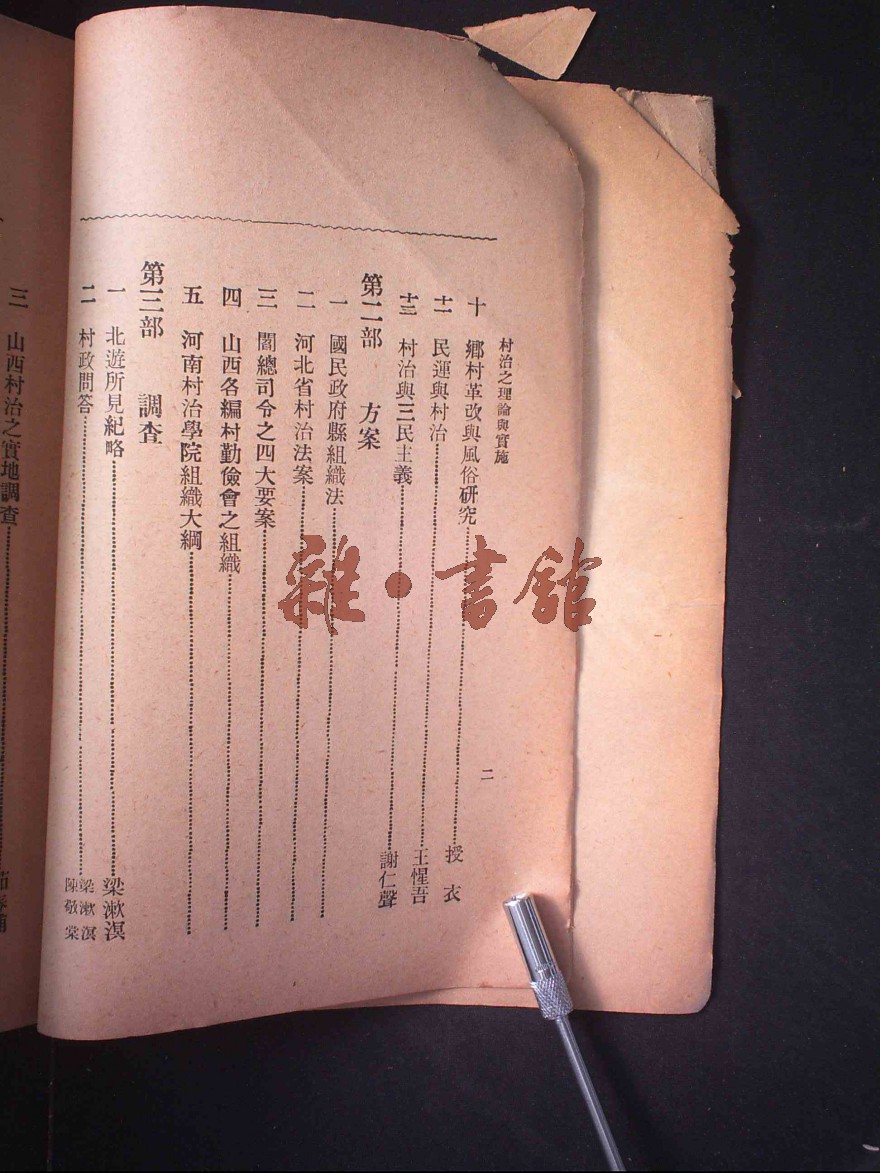 村治之理論與實施
二
十 鄉村革改與風俗研究 授衣
十一 民運與村治 王惺吾
十二 村治與三民主義 謝仁聲
第二部 方案
一 國民政府縣組織法
二 河北省村治法案
三 閻總司令之四大要案
四 山西各編村勤儉會之組織
五 河南村治學院組織大綱
第三部 調查
一 北遊所見紀略 梁漱溟
二 村政問答 梁漱溟 陳敬棠
三 山西村治之實地調查
雜·書館